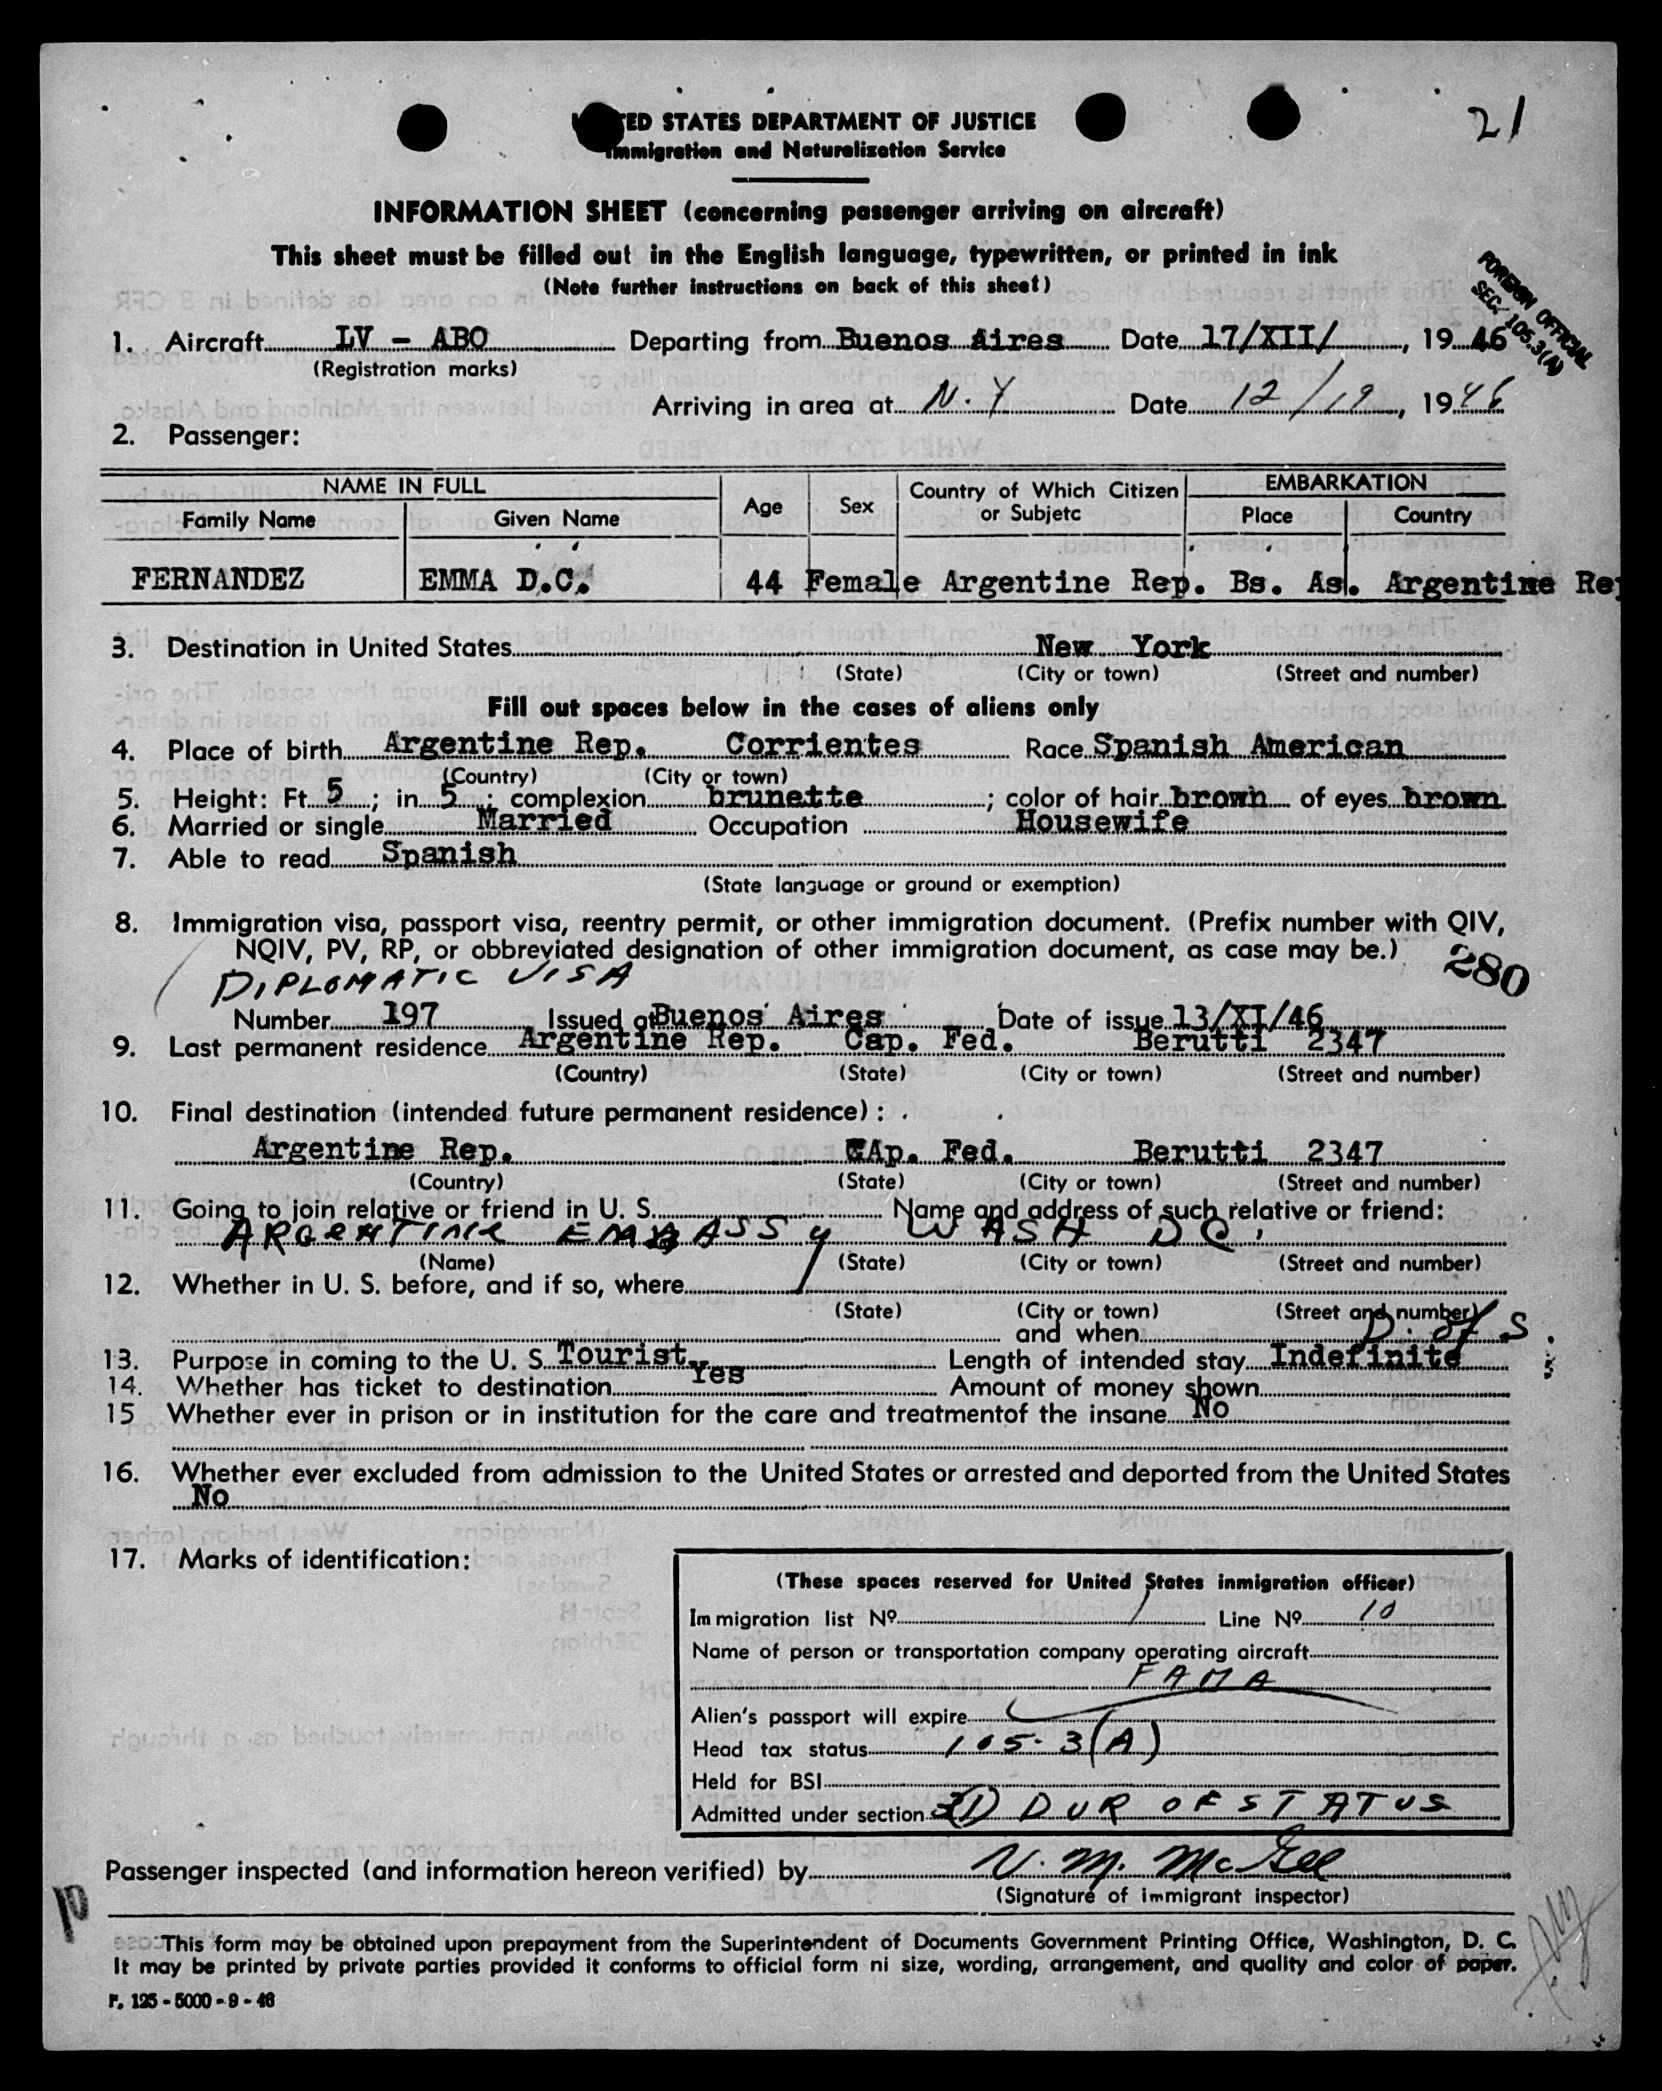 21
UNITED STATES DEPARTMENT OF JUSTICE
Immigration and Naturalization Service
INFORMATION SHEET (concerning passenger arriving on aircraft)
This sheet must be filled out in the English language, typewritten, or printed in ink
(Note further instructions on back of this sheet)
FOREIGN OFFICIAL
SEC. 105.3(A)
1. Aircraft LV - ABO Departing from Buenos Aires Date 17/XII/, 1946
(Registration marks)
Arriving in area at N.Y Date 12/19, 1946
2. Passenger:
NAME IN FULL Age Sex Country of Which Citizen or Subjetc EMBARKATION
Family Name Given Name Place Country
FERNANDEZ EMMA D.C. 44 Female Argentine Rep. Bs. As. Argentine Rep
3. Destination in United States New York
(State) (City or town) (Street and number)
Fill out spaces below in the cases of aliens only
4. Place of birth Argentine Rep. Corrientes Race Spanish American
(Country) (City or town)
5. Height: Ft. 5; in. 5; complexion brunette; color of hair brown of eyes brown
6. Married or single Married Occupation Housewife
7. Able to read Spanish
(State language or ground or exemption)
8. Immigration visa, passport visa, reentry permit, or other immigration document. (Prefix number with QIV,
NQIV, PV, RP, or obbreviated designation of other immigration document, as case may be.)
DIPLOMATIC VISA 280
Number 197 Issued at Buenos Aires Date of issue 13/XI/46
9. Last permanent residence Argentine Rep. Cap. Fed. Berutti 2347
(Country) (State) (City or town) (Street and number)
10. Final destination (intended future permanent residence):
Argentine Rep. CAp. Fed. Berutti 2347
(Country) (State) (City or town) (Street and number)
11. Going to join relative or friend in U. S. Name and address of such relative or friend:
ARGENTINE EMBASSY WASH DC.
(Name) (State) (City or town) (Street and number)
12. Whether in U. S. before, and if so, where
(State) (City or town) (Street and number)
and when D. of S.
13. Purpose in coming to the U. S. Tourist Length of intended stay Indefinite
14. Whether has ticket to destination Yes Amount of money shown
15 Whether ever in prison or in institution for the care and treatmentof the insane No
16. Whether ever excluded from admission to the United States or arrested and deported from the United States
No
17. Marks of identification:
(These spaces reserved for United States inmigration officer)
Immigration list Nº 1 Line Nº 10
Name of person or transportation company operating aircraft
FAMA
Alien's passport will expire
Head tax status 105-3(A)
Held for BSI
Admitted under section 3(1) DUR OF STATUS
Passenger inspected (and information hereon verified) by V. M. McGee
(Signature of immigrant inspector)
This form may be obtained upon prepayment from the Superintendent of Documents Government Printing Office, Washington, D. C.
It may be printed by private parties provided it conforms to official form ni size, wording, arrangement, and quality and color of paper.
F. 125 - 5000 - 9 - 46